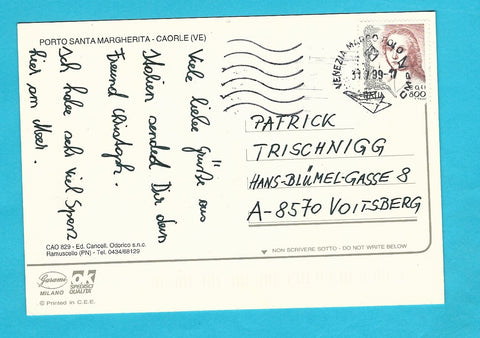 PORTO SANTA MARGHERITA - CAORLE (VE)
Viele liebe Grüße aus
Italien sendet Dir dein
Freund Christoph.
Ich habe sehr viel Spass
hier am Meer.
VENEZIA MARCO POLO
99
ITALIA
800
PATRICK
TRISCHNIGG
HANS-BLÜMEL-GASSE 8
A-8570 VOITSBERG
CAO 829 - Ed. Cancell. Odorico s.n.c.
Ramuscello (PN) - Tel. 0434/68129
NON SCRIVERE SOTTO - DO NOT WRITE BELOW
Garami
MILANO
OK
SPEDISCI
QUALITA'
© Printed in C.E.E.